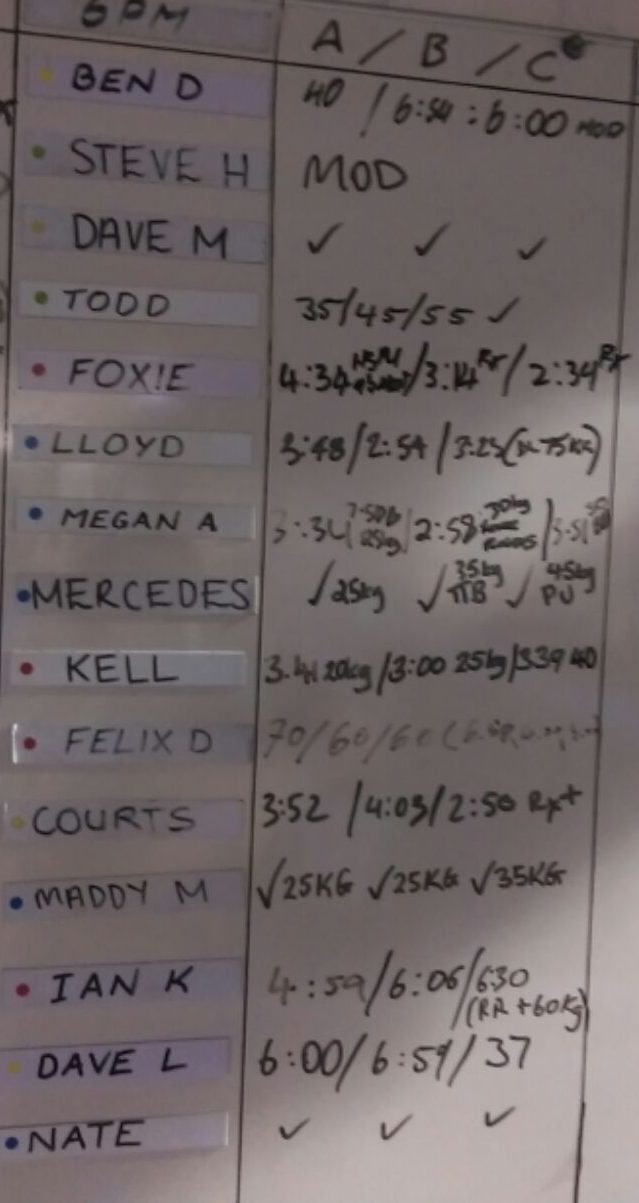 6PM A / B / C
BEN D 40 / 6:54 : 6:00 MOD
STEVE H MOD
DAVE M ✓ ✓ ✓
TODD 35/45/55 ✓
FOXIE 4:34 /3:14 Rx / 2:34 Rx
LLOYD 3:48/2:54 / 3:23
MEGAN A 25kg /2:58 30kg
MERCEDES ✓ 25kg ✓ 35kg TTB ✓ 45kg PU
KELL 3.41 20kg /3:00 25kg /339 40
FELIX D 70/60/60
COURTS 3:52 /4:03/2:50 Rx+
MADDY M ✓25KG ✓25KG ✓35KG
IAN K 4:59/6:06/630
(RR +60kg)
DAVE L 6:00/6:59/37
NATE ✓ ✓ ✓